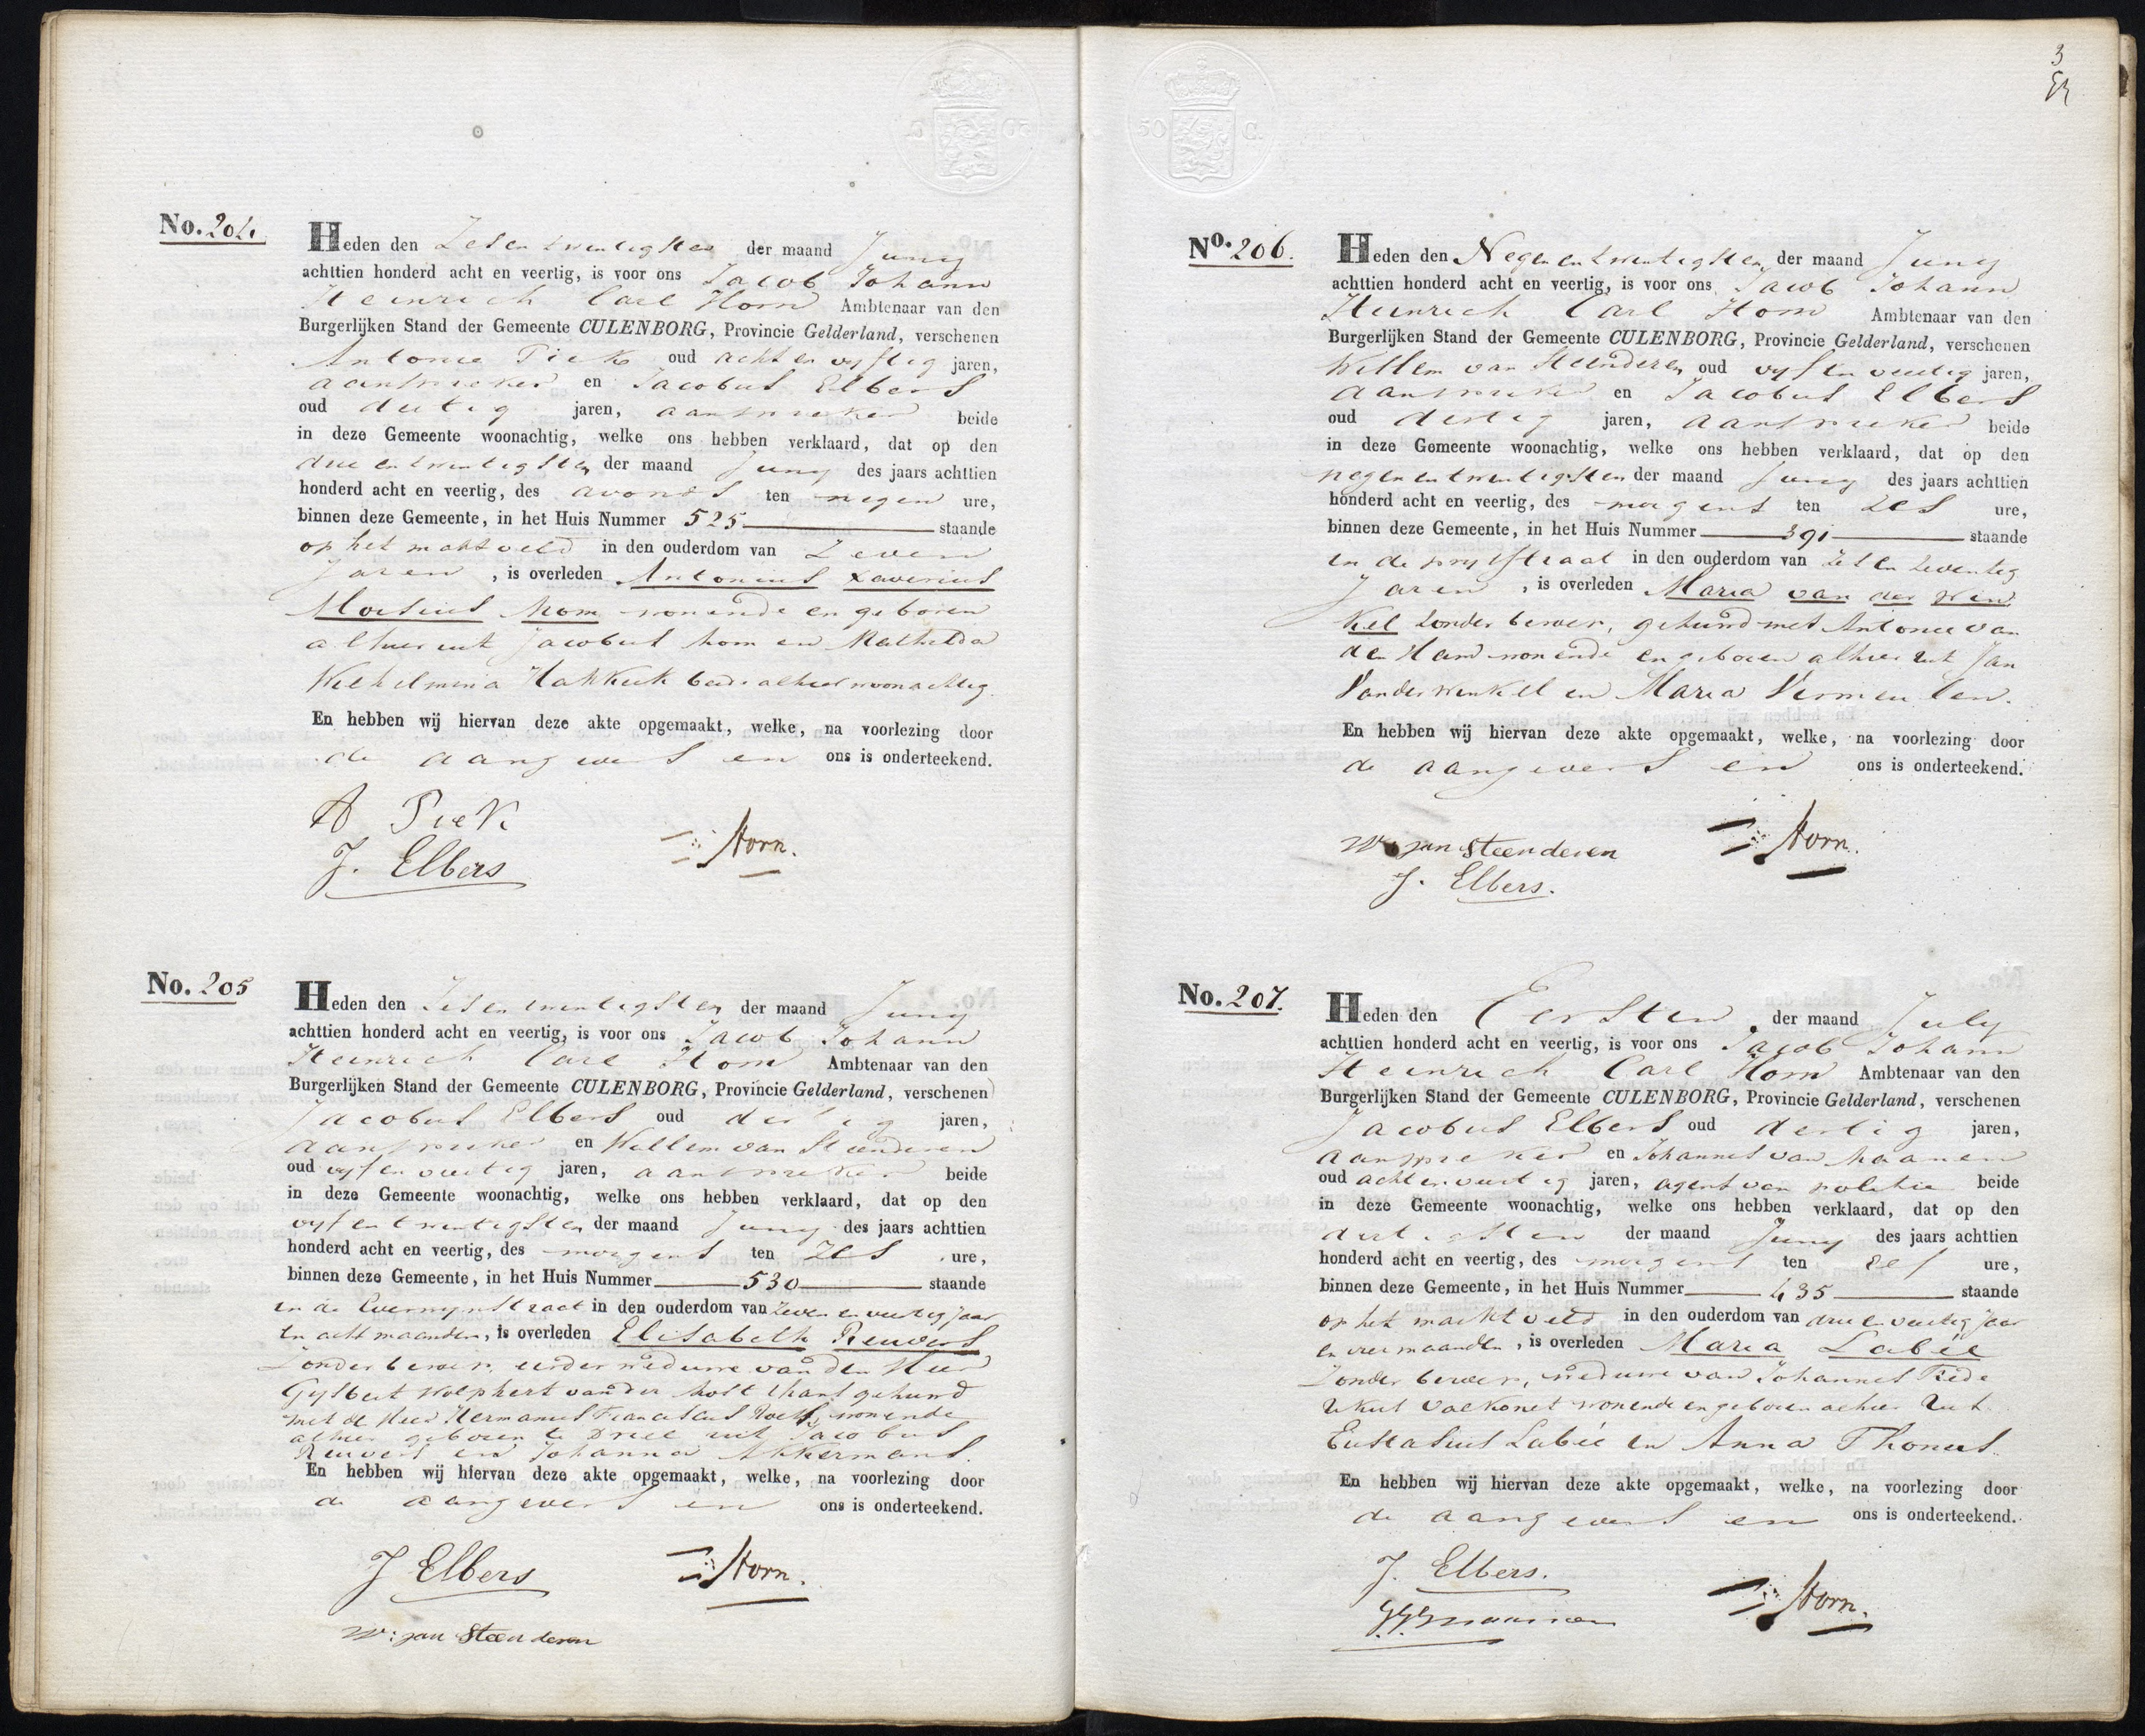 No. 204.
Heden den Zesentwentigsten der maand Juny
achttien honderd acht en veertig, is voor ons Jacob Johann
Heinrich Carl Horn Ambtenaar van den
Burgerlijken Stand der Gemeente CULENBORG, Provincie Gelderland, verschenen
Antonie Piek oud acht en vyftig jaren,
aanspreker en Jacobus Elbers
oud dertig jaren, aanspreker beide
in deze Gemeente woonachtig, welke ons hebben verklaard, dat op den
drie en twentigsten der maand Juny des jaars achttien
honderd acht en veertig, des avonds ten negen ure,
binnen deze Gemeente, in het Huis Nummer 525 staande
op het marktveld in den ouderdom van Zeven
Jaren, is overleden Antonius Xaverius
Aloisius Kom wonende en geboren
alhier uit Jacobus Kom en Mathilda
Wilhelmina Hakkeik beide alhier woonachtig.
En hebben wij hiervan deze akte opgemaakt, welke, na voorlezing door
de aangevers en ons is onderteekend.
A Piek
J. Elbers
Horn.
No. 205
Heden den Zesentwentigsten der maand Juny
achttien honderd acht en veertig, is voor ons Jacob Johann
Heinrich Carl Horn Ambtenaar van den
Burgerlijken Stand der Gemeente CULENBORG, Provincie Gelderland, verschenen
Jacobus Elbers oud dertig jaren,
aanspreker en Willem van Steenderen
oud vyf en veertig jaren, aanspreker beide
in deze Gemeente woonachtig, welke ons hebben verklaard, dat op den
vyf en twentigsten der maand Juny des jaars achttien
honderd acht en veertig, des morgens ten zes ure,
binnen deze Gemeente, in het Huis Nummer 530 staande
in de Everwynstraat in den ouderdom van zeven en veertig jaar
en acht maanden, is overleden Elisabeth Reuvers
Zonder beroep, eerder weduwe van den Heer
Gysbert Wolphert van der Holt thans gehuwd
met de Heer Hermanus Franciscus Roes, wonende
alhier geboren te Driel uit Jacobus
Reuvers en Johanna Akkermans.
En hebben wij hiervan deze akte opgemaakt, welke, na voorlezing door
de aangevers en ons is onderteekend.
J Elbers
Horn.
W: van Steenderen
3
No. 206.
Heden den Negen en twentigsten der maand Juny
achttien honderd acht en veertig, is voor ons Jacob Johann
Heinrich Carl Horn Ambtenaar van den
Burgerlijken Stand der Gemeente CULENBORG, Provincie Gelderland, verschenen
Willem van Steenderen oud vyf en veertig jaren,
aanspreker en Jacobus Elbers
oud dertig jaren, aanspreker beide
in deze Gemeente woonachtig, welke ons hebben verklaard, dat op den
negen en twentigsten der maand Juny des jaars achttien
honderd acht en veertig, des morgens ten zes ure,
binnen deze Gemeente, in het Huis Nummer 391 staande
in de prysstraat in den ouderdom van Zes en Zeventig
Jaren, is overleden Maria van der Win
kel Zonder beroep, gehuwd met Antonie van
den Ham wonende en geboren alhier uit Jan
Van der Winkel en Maria Vermeulen.
En hebben wij hiervan deze akte opgemaakt, welke, na voorlezing door
de aangevers en ons is onderteekend.
W. van Steenderen
J. Elbers.
Horn.
No. 207.
Heden den Eersten der maand July
achttien honderd acht en veertig, is voor ons Jacob Johann
Heinrich Carl Horn Ambtenaar van den
Burgerlijken Stand der Gemeente CULENBORG, Provincie Gelderland, verschenen
Jacobus Elbers oud dertig jaren,
aanspreker en Johannes van Maanen
oud acht en veertig jaren, agent van politie beide
in deze Gemeente woonachtig, welke ons hebben verklaard, dat op den
dertigsten der maand Juny des jaars achttien
honderd acht en veertig, des morgens ten zes ure,
binnen deze Gemeente, in het Huis Nummer 435 staande
op het marktveld in den ouderdom van drie en veertig jaar
en vier maanden, is overleden Maria Labée
Zonder beroep, weduwe van Johannes Frede
rikus Valkonet wonende en geboren alhier uit
Eustasius Labée en Anna Thones.
En hebben wij hiervan deze akte opgemaakt, welke, na voorlezing door
de aangevers en ons is onderteekend.
J. Elbers.
Horn.
50 C.